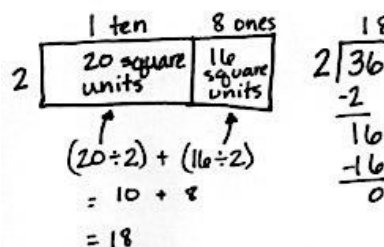 1 ten 8 ones
2 20 square units 16 square units
(20÷2) + (16÷2)
= 10 + 8
= 18
18
2)36
-2
16
-16
0